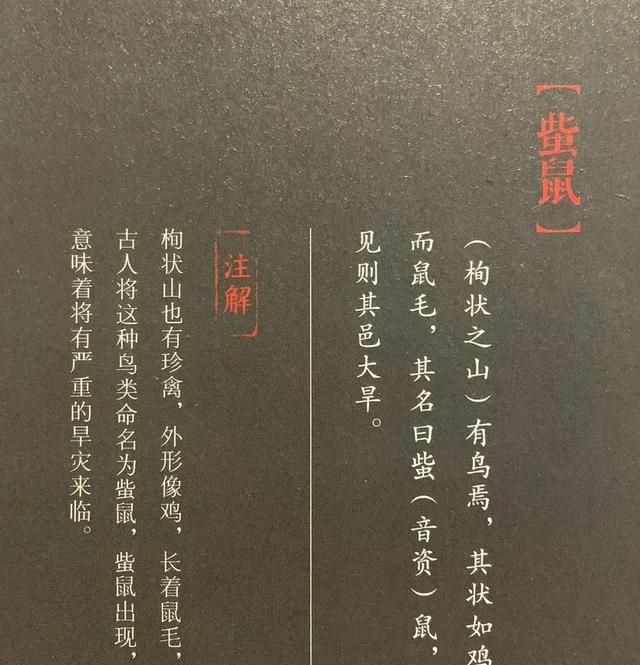 【蚩鼠】
（栒状之山）有鸟焉，其状如鸡
而鼠毛，其名曰蚩（音资）鼠，
见则其邑大旱。
注解
栒状山也有珍禽，外形像鸡，长着鼠毛，
古人将这种鸟类命名为蚩鼠，蚩鼠出现，
意味着将有严重的旱灾来临。